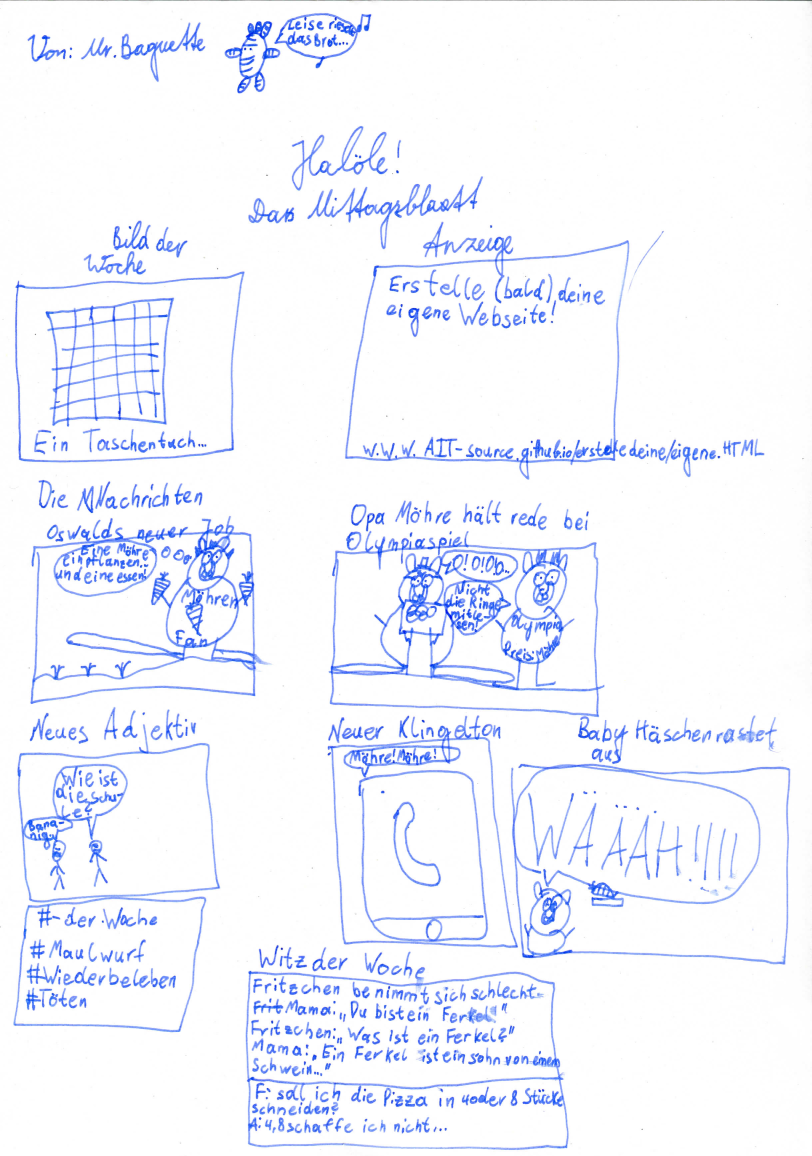 Von: Mr. Baguette
Leise riesel
das Brot...
Halöle!
Das Mittagsblaatt
Bild der
Woche
Ein Taschentuch...
Anzeige
Erstelle (bald) deine
eigene Webseite!
w.w.w. AIT-source.github.io/erstelle deine/eigene.HTML
Die Nachrichten
Oswalds neuer Job
Eine Möhre
einpflanzen..
und eine essen!
Möhren
Fan
Opa Möhre hält rede bei
Olympiaspiel
O!O!O!O..
Nicht
die Ringe
mitle-
sen!
Olympia
Preis Möhre
Neues Adjektiv
Wie ist
die Schu-
le?
Bana-
nig
Neuer Klingelton
Möhre! Möhre!
Baby Häschen rastet
aus
WÄÄÄH!!!!
#-der Woche
#Maulwurf
#Wiederbeleben
#Töten
Witz der Woche
Fritzchen benimmt sich schlecht
Frit Mama: „Du bist ein Ferkel!"
Fritzchen: „Was ist ein Ferkel?"
Mama: „Ein Ferkel ist ein sohn von einem
Schwein..."
F: soll ich die Pizza in 4 oder 8 Stücke
schneiden?
A: 4, 8 schaffe ich nicht...